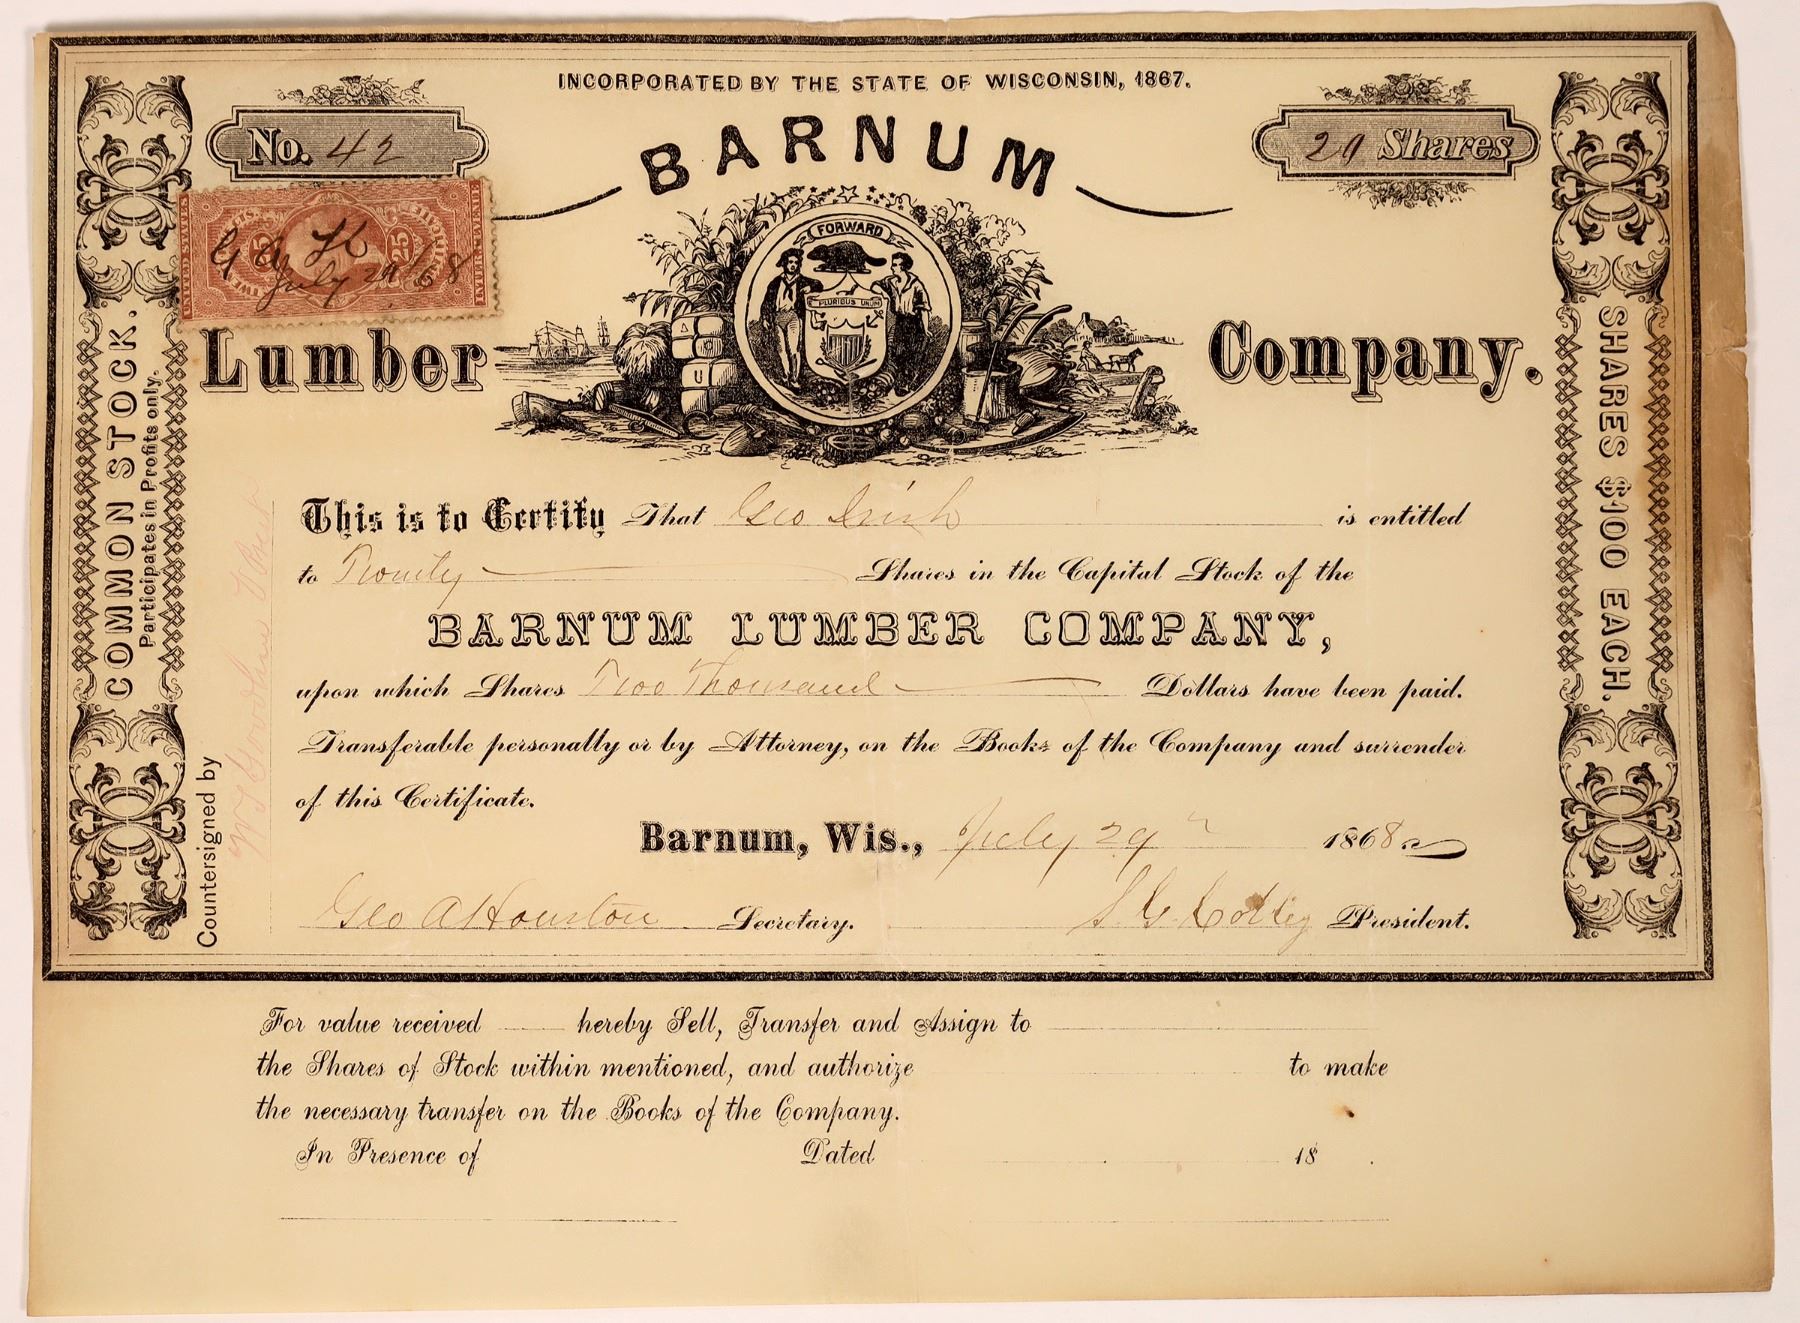 INCORPORATED BY THE STATE OF WISCONSIN, 1867.
No. 42
20 Shares
BARNUM
UNITED STATES
INTER. REVENUE
25 25
G A H
July 29/68
FORWARD
PLURIBUS UNUM
Lumber Company.
COMMON STOCK.
Participates in Profits only.
SHARES $100 EACH.
Countersigned by
This is to Certify That Geo Irish is entitled
to Twenty Shares in the Capital Stock of the
BARNUM LUMBER COMPANY,
upon which Shares Two Thousand Dollars have been paid.
Transferable personally or by Attorney, on the Books of the Company and surrender
of this Certificate.
Barnum, Wis., July 29 1868
Geo A Houston Secretary. S. G. Colley President.
For value received hereby Sell, Transfer and Assign to
the Shares of Stock within mentioned, and authorize to make
the necessary transfer on the Books of the Company.
In Presence of Dated 18 .